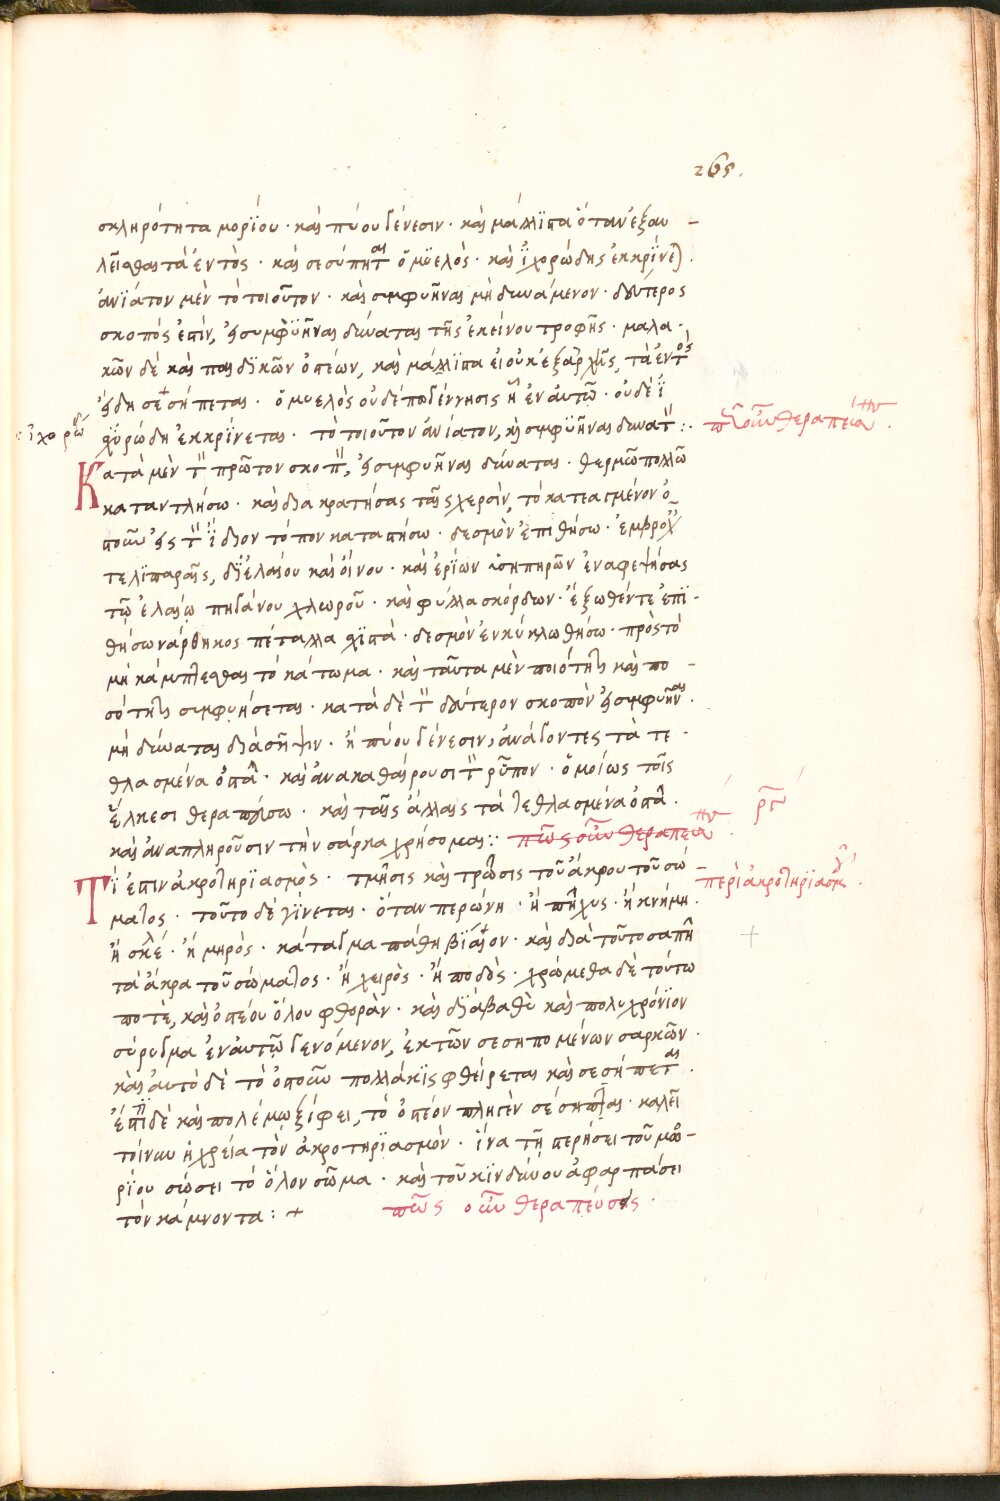 265.
σκληρότητα μορΐου · καὶ πύου γένεσιν · καὶ μάλϊστα ὅταν ἐξαυ –
λεῖσθαι τὰ ἐντὸς · καὶ σεσύπηται ὁ μϋελὸς · καὶ ἰχορώδης ἐκκρίνεται ·
ἀνΐατον μὲν τὸ τοιοῦτον · καὶ συμφυῆναι μὴ δυνάμενον · δεύτερος
σκοπός ἐστιν, εἰ συμφϋῆναι δύναται τῆς ἐκείνου τροφῆς · μαλα ·
κῶν δὲ καὶ παιδϊκῶν ὀστέων, καὶ μάλϊστα εἰ οὐκ ἐξαρχῆς, τὰ ἐντὸς
ἤδη σεσήπεται · ὁ μυελὸς οὐδέπω γέννησις ἦ ἐν αὐτῷ · οὐδὲ ΐ
ἰχορώδ
χϋρώδη ἐκκρΐνεται · τὸ τοιοῦτον ἀνίατον, καὶ συμφϋῆναι δυνατ :·
πῶς οὖν θεραπείαν ·
Κατὰ μὲν τὸν πρῶτον σκοπὸν, εἰ συμφυῆναι δύναται · θερμῶ πολλῶ
καταντλήσω · καὶ διακρατήσας ταῖς χερσὶν, τὸ κατεασμένον ὀ
στοῦν εἰς τὸν ἴδιον τόπον καταστήσω · δεσμὸν ἐπιθήσω · ἐμβροχ
τε λϊπαραῖς, δϊ ἐλαίου καὶ οἴνου · καὶ ἐρίων οἰσηπηρῶν ἐναφεψήσας
τῷ ἐλαίῳ πηγάνου χλωροῦ · καὶ φύλλα σκόρδων · ἔξωθέν τε ἐπϊ –
θήσω νάρθηκος πέταλλα σχϊστὰ · δεσμὸν ἐν κύκλω θήσω · πρὸς τὸ
μὴ κάμπτεσθαι τὸ κάτωμα · καὶ ταῦτα μὲν ποιότητι καὶ πο –
σότητι συμφυήσεται · κατὰ δὲ τὸν δεύτερον σκοπὸν εἰ συμφυῆναι ·
μὴ δύναται διὰ σῆψιν · ἢ πύου γένεσιν, ἀνάγοντες τὰ τε ·
θλασμένα ὀστᾶ · καὶ ἀνακαθαίρουσι τὸν ρῦπον · ὁμοίως τοῖς
ἕλκεσι θεραπεύσω · καὶ ταῖς ἄλλαις τὰ τεθλασμένα ὀστᾶ ·
καὶ ἀναπληροῦσιν τὴν σάρκα χρήσομαι :· πῶς οὖν θεραπείαν ·
ρ
Τΐ ἐστιν ἀκροτηρϊασμὸς · τμῆσις καὶ τρῶσις τοῦ ἄκρου τοῦ σώ –
περὶ ἀκροτηρϊασμοῦ ·
ματος · τοῦτο δὲ γΐνεται · ὅταν περώνη · ἢ πῆχυς · ἢ κνήμη ·
ἢ σκέλ · ἢ μηρὸς · κάταγμα πάθη βΐαιον · καὶ διὰ τοῦτο σαπῆ
τὰ ἄκρα τοῦ σώματος · ἢ χειρὸς · ἢ ποδὸς · χρώμεθα δὲ τούτω
ποτὲ, καὶ ὀστέου ὅλου φθορὰν · καὶ δϊὰ βαθὺ καὶ πολυχρόνϊον
σύρυγμα ἐν αὐτῷ γενόμενον, ἐκ τῶν σεσηπομένων σαρκῶν ·
καὶ αὐτὸ δὲ τὸ ὀστοῦν πολλάκϊς φθείρεται καὶ σεσήπεται ·
ἐπεὶ δὲ καὶ πολέμω ξίφει, τὸ ὀστέον πληγὲν σέσηπται · καλεῖ
τοίνυν ἡ χρεία τὸν ἀκροτηρϊασμόν · ἵνα τῇ στερήσει τοῦ μο –
ρίου σώσει τὸ ὅλον σῶμα · καὶ τοῦ κϊνδύνου ἀφαρπάσει
τὸν κάμνοντα : +
πῶς οὖν θεραπεύσεις ·